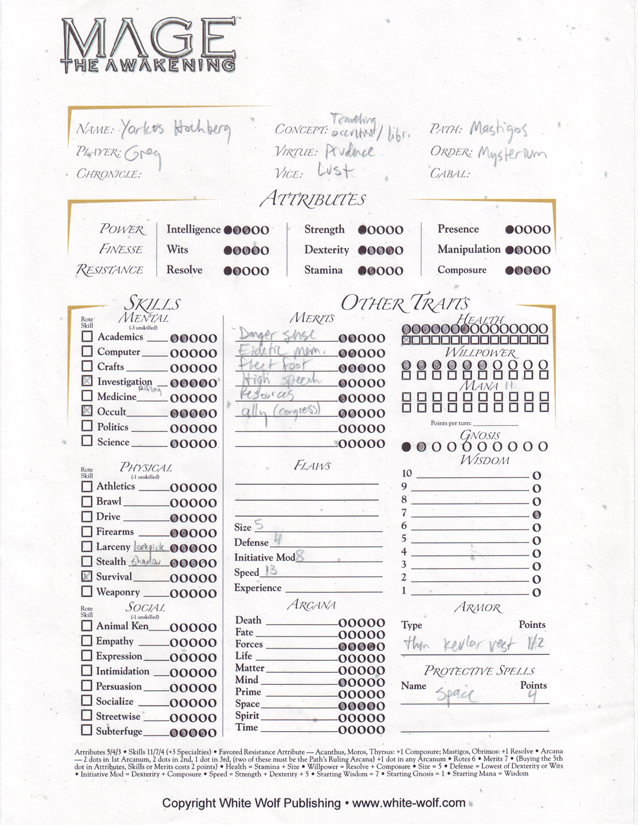 MAGE
THE AWAKENING
NAME: Yorkos Hochberg CONCEPT: Traveling occultist / libr. PATH: Mastigos
PLAYER: Greg VIRTUE: Prudence ORDER: Mysterium
CHRONICLE: VICE: Lust CABAL:
ATTRIBUTES
POWER Intelligence Strength Presence
FINESSE Wits Dexterity Manipulation
RESISTANCE Resolve Stamina Composure
SKILLS
MENTAL
(-3 unskilled)
Rote Skill
Academics
Computer
Crafts
Investigation
Medicine
Occult
Politics
Science
PHYSICAL
(-1 unskilled)
Rote Skill
Athletics
Brawl
Drive
Firearms
Larceny lockpick
Stealth shadow
Survival
Weaponry
SOCIAL
(-1 unskilled)
Rote Skill
Animal Ken
Empathy
Expression
Intimidation
Persuasion
Socialize
Streetwise
Subterfuge
OTHER TRAITS
MERITS
Danger sense
Eidetic mem.
Fleet foot
High speech
Resources
ally (congress)
FLAWS
Size 5
Defense 4
Initiative Mod 8
Speed 13
Experience
ARCANA
Death
Fate
Forces
Life
Matter
Mind
Prime
Space
Spirit
Time
HEALTH
WILLPOWER
MANA 11
Points per turn:
GNOSIS
WISDOM
10
9
8
7
6
5
4
3
2
1
ARMOR
Type Points
thin kevlar vest 1/2
PROTECTIVE SPELLS
Name Points
Space 4
Attributes 5/4/3 • Skills 11/7/4 (+3 Specialties) • Favored Resistance Attribute — Acanthus, Moros, Thyrsus: +1 Composure; Mastigos, Obrimos: +1 Resolve • Arcana
— 2 dots in 1st Arcanum, 2 dots in 2nd, 1 dot in 3rd, (two of these must be the Path's Ruling Arcana) +1 dot in any Arcanum • Rotes 6 • Merits 7 • (Buying the 5th
dot in Attributes, Skills or Merits costs 2 points) • Health = Stamina + Size • Willpower = Resolve + Composure • Size = 5 • Defense = Lowest of Dexterity or Wits
• Initiative Mod = Dexterity + Composure • Speed = Strength + Dexterity + 5 • Starting Wisdom = 7 • Starting Gnosis = 1 • Starting Mana = Wisdom
Copyright White Wolf Publishing • www.white-wolf.com